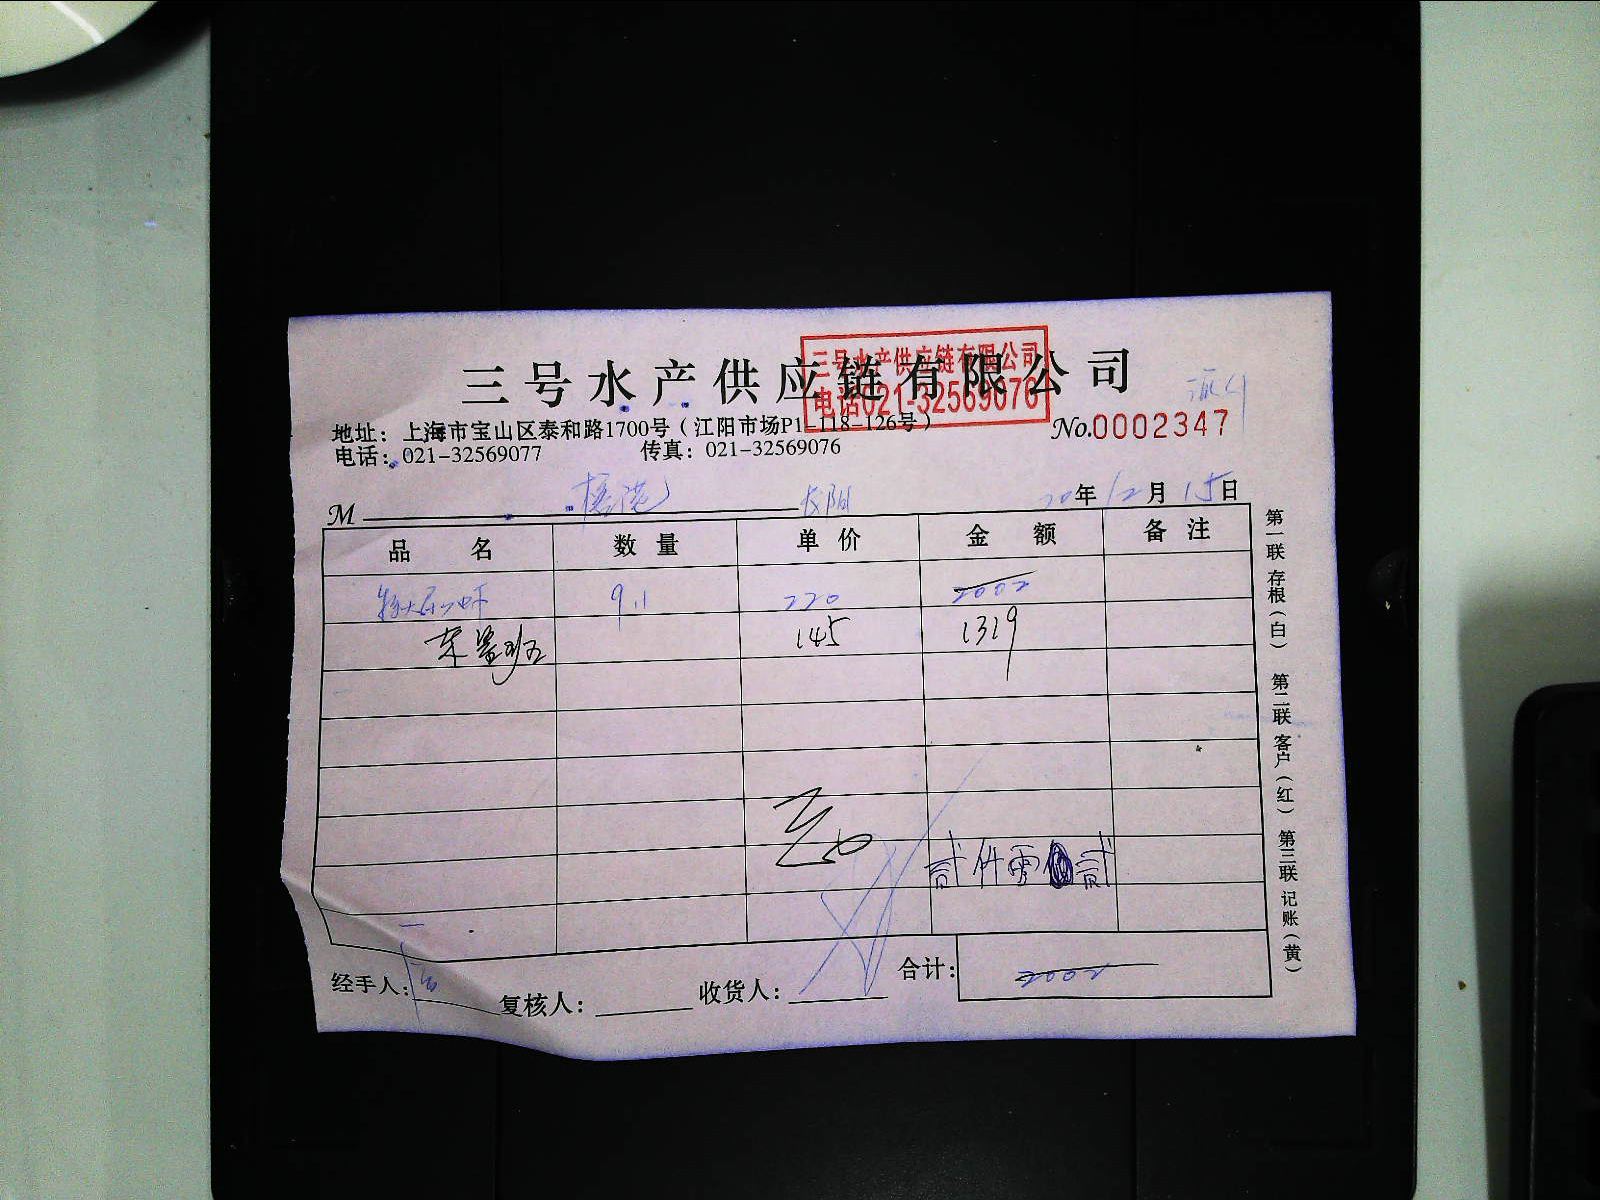 三号水产供应链有限公司
三号水产供应链有限公司
电话021-32569076
地址：上海市宝山区泰和路1700号（江阳市场P1-118-126号）
No.0002347
电话：021-32569077 传真：021-32569076
M 长阳 20年12月15日
品名 数量 单价 金额 备注
9.1 220 2002
东星斑 145 1319
贰仟零贰
合计：2002
经手人： 复核人： 收货人：
第一联 存根（白） 第二联 客户（红） 第三联 记账（黄）